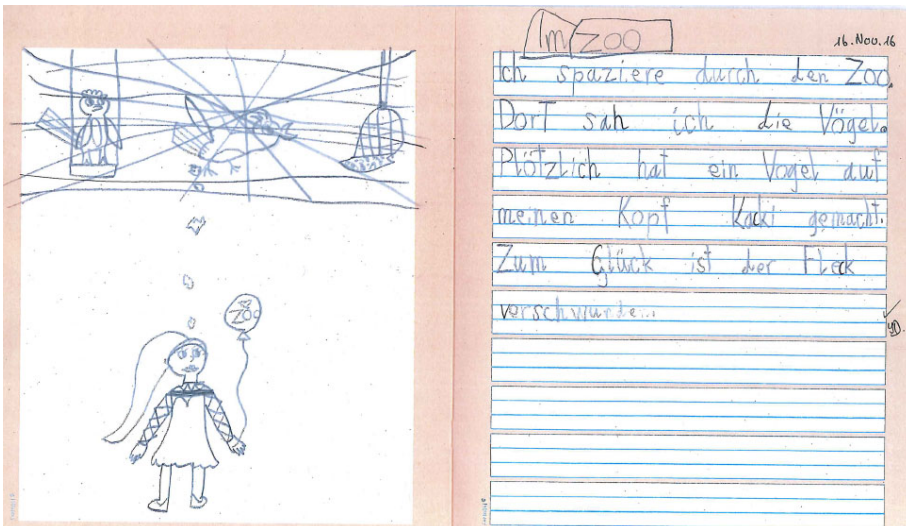 Im ZOO
16. Nov. 16
Ich spaziere durch den Zoo.
Dort sah ich die Vögel.
Plötzlich hat ein Vogel auf
meinen Kopf Kacki gemacht.
Zum Glück ist der Fleck
verschwunde...
ZOO